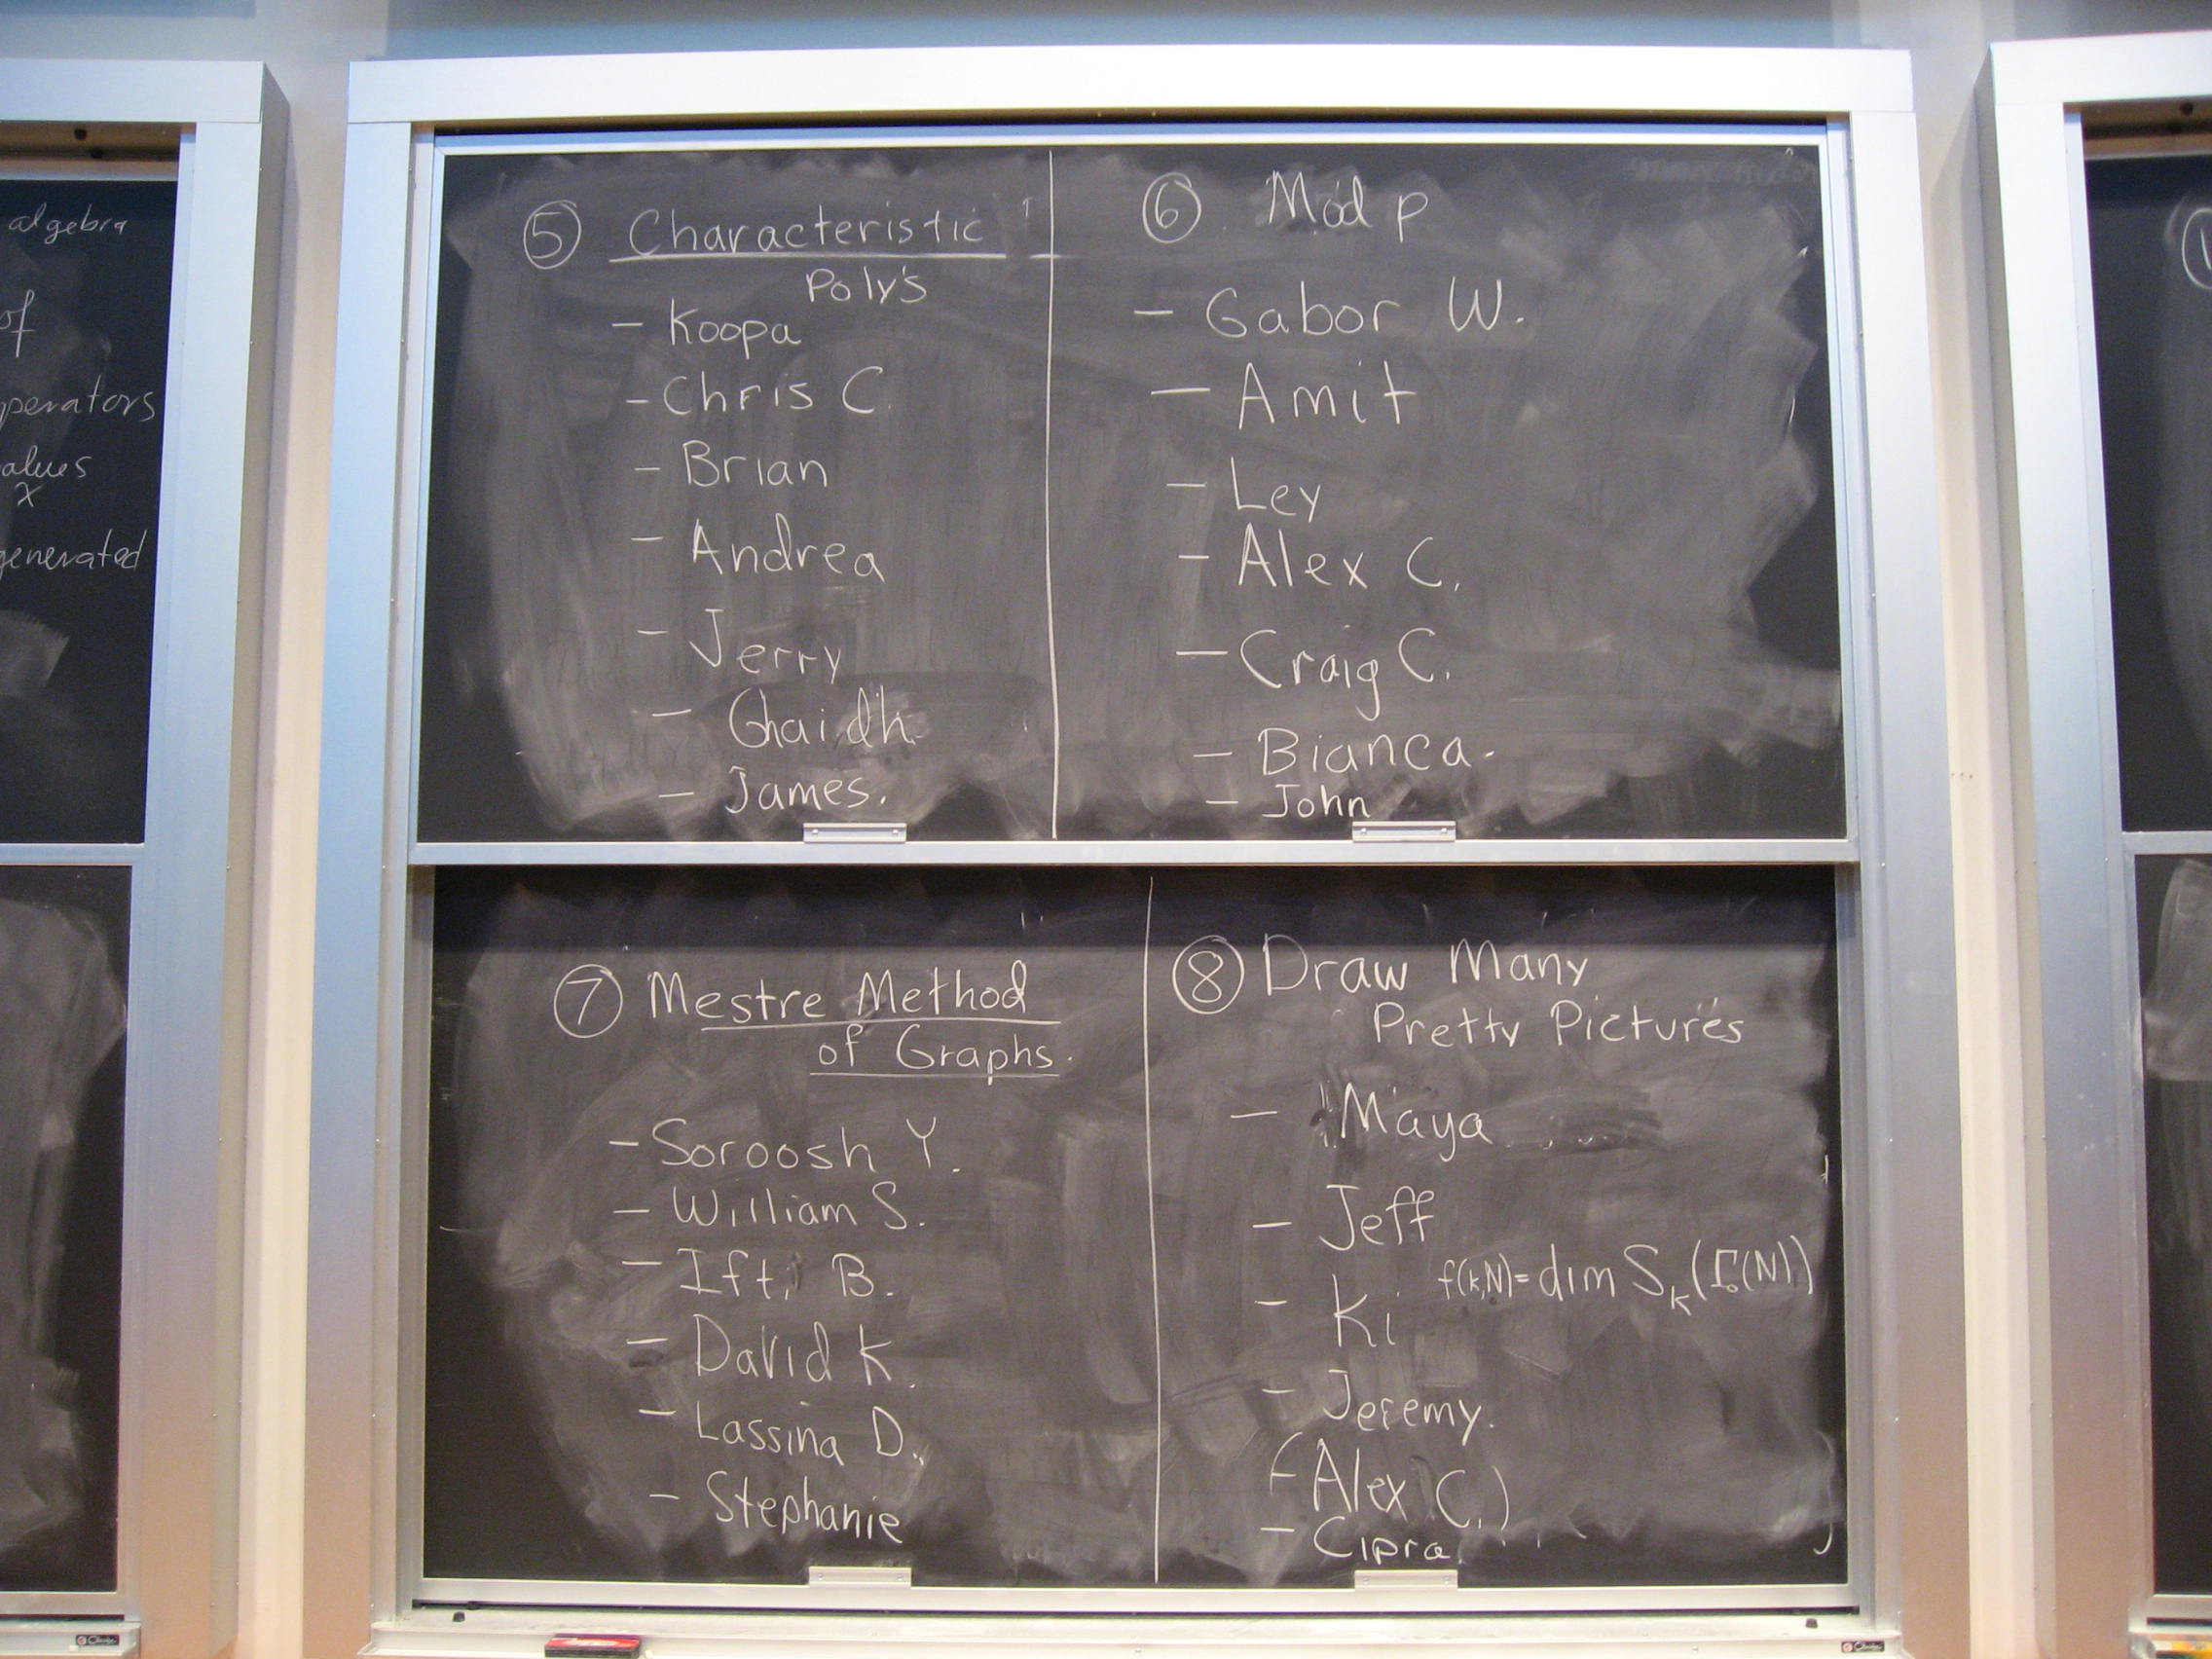 algebra
of
operators
values
x
generated
⑤ Characteristic
Poly's
- Koopa
- Chris C.
- Brian
- Andrea
- Jerry
- Ghaidh
- James.
⑥ Mod p
- Gabor W.
- Amit
- Ley
- Alex C.
- Craig C.
- Bianca
- John
⑦ Mestre Method
of Graphs.
- Soroosh Y.
- William S.
- Ifti B.
- David K.
- Lassina D.
- Stephanie
⑧ Draw Many
Pretty Pictures
- Maya
- Jeff
f(k,N) = dim S_k(Γ₀(N))
- Ki
- Jeremy.
(- Alex C.)
- Cipra